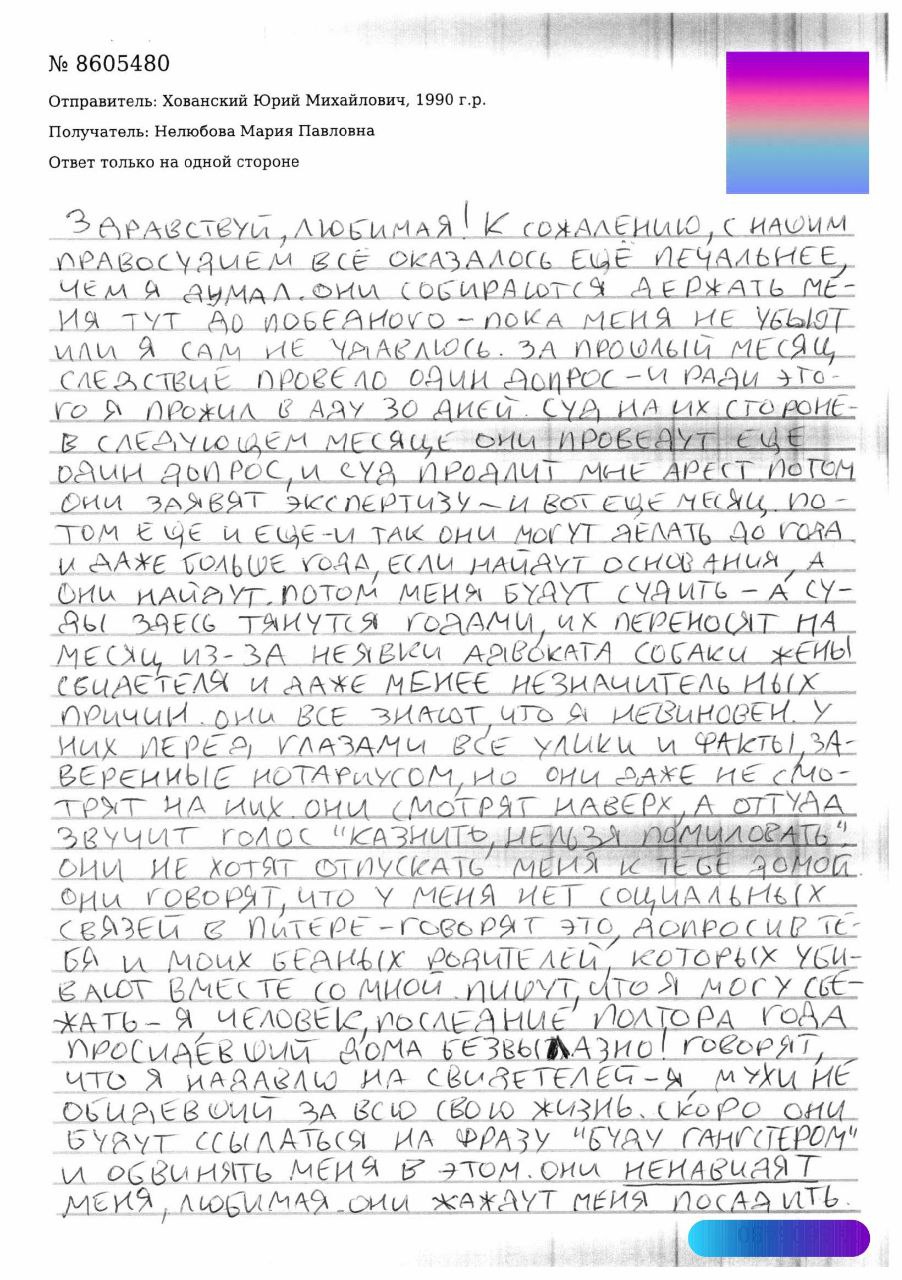 № 8605480
Отправитель: Хованский Юрий Михайлович, 1990 г.р.
Получатель: Нелюбова Мария Павловна
Ответ только на одной стороне
ЗДРАВСТВУЙ, ЛЮБИМАЯ! К СОЖАЛЕНИЮ, С НАШИМ
ПРАВОСУДИЕМ ВСЁ ОКАЗАЛОСЬ ЕЩЁ ПЕЧАЛЬНЕЕ,
ЧЕМ Я ДУМАЛ. ОНИ СОБИРАЮТСЯ ДЕРЖАТЬ МЕ-
НЯ ТУТ ДО ПОБЕДНОГО - ПОКА МЕНЯ НЕ УБЬЮТ
ИЛИ Я САМ НЕ УДАВЛЮСЬ. ЗА ПРОШЛЫЙ МЕСЯЦ
СЛЕДСТВИЕ ПРОВЕЛО ОДИН ДОПРОС - И РАДИ ЭТО-
ГО Я ПРОЖИЛ В АДУ 30 ДНЕЙ. СУД НА ИХ СТОРОНЕ-
В СЛЕДУЮЩЕМ МЕСЯЦЕ ОНИ ПРОВЕДУТ ЕЩЕ
ОДИН ДОПРОС, И СУД ПРОДЛИТ МНЕ АРЕСТ. ПОТОМ
ОНИ ЗАЯВЯТ ЭКСПЕРТИЗУ - И ВОТ ЕЩЕ МЕСЯЦ. ПО-
ТОМ ЕЩЕ И ЕЩЕ - И ТАК ОНИ МОГУТ ДЕЛАТЬ ДО ГОДА
И ДАЖЕ БОЛЬШЕ ГОДА, ЕСЛИ НАЙДУТ ОСНОВАНИЯ, А
ОНИ НАЙДУТ. ПОТОМ МЕНЯ БУДУТ СУДИТЬ - А СУ-
ДЫ ЗДЕСЬ ТЯНУТСЯ ГОДАМИ, ИХ ПЕРЕНОСЯТ НА
МЕСЯЦ ИЗ-ЗА НЕЯВКИ АДВОКАТА СОБАКИ ЖЕНЫ
СВИДЕТЕЛЯ И ДАЖЕ МЕНЕЕ НЕЗНАЧИТЕЛЬНЫХ
ПРИЧИН. ОНИ ВСЕ ЗНАЮТ, ЧТО Я НЕВИНОВЕН. У
НИХ ПЕРЕД ГЛАЗАМИ ВСЕ УЛИКИ И ФАКТЫ, ЗА-
ВЕРЕННЫЕ НОТАРИУСОМ, НО ОНИ ДАЖЕ НЕ СМО-
ТРЯТ НА НИХ. ОНИ СМОТРЯТ НАВЕРХ, А ОТТУДА
ЗВУЧИТ ГОЛОС "КАЗНИТЬ, НЕЛЬЗЯ ПОМИЛОВАТЬ".
ОНИ НЕ ХОТЯТ ОТПУСКАТЬ МЕНЯ К ТЕБЕ ДОМОЙ.
ОНИ ГОВОРЯТ, ЧТО У МЕНЯ НЕТ СОЦИАЛЬНЫХ
СВЯЗЕЙ В ПИТЕРЕ - ГОВОРЯТ ЭТО, ДОПРОСИВ ТЕ-
БЯ И МОИХ БЕДНЫХ РОДИТЕЛЕЙ, КОТОРЫХ УБИ-
ВАЮТ ВМЕСТЕ СО МНОЙ. ПИШУТ, ЧТО Я МОГУ СБЕ-
ЖАТЬ - Я, ЧЕЛОВЕК, ПОСЛЕДНИЕ ПОЛТОРА ГОДА
ПРОСИДЕВШИЙ ДОМА БЕЗВЫЛАЗНО! ГОВОРЯТ,
ЧТО Я НАДАВЛЮ НА СВИДЕТЕЛЕЙ - Я, МУХИ НЕ
ОБИДЕВШИЙ ЗА ВСЮ СВОЮ ЖИЗНЬ. СКОРО ОНИ
БУДУТ ССЫЛАТЬСЯ НА ФРАЗУ "БУДУ ГАНГСТЕРОМ"
И ОБВИНЯТЬ МЕНЯ В ЭТОМ. ОНИ НЕНАВИДЯТ
МЕНЯ, ЛЮБИМАЯ. ОНИ ЖАЖДУТ МЕНЯ ПОСАДИТЬ.